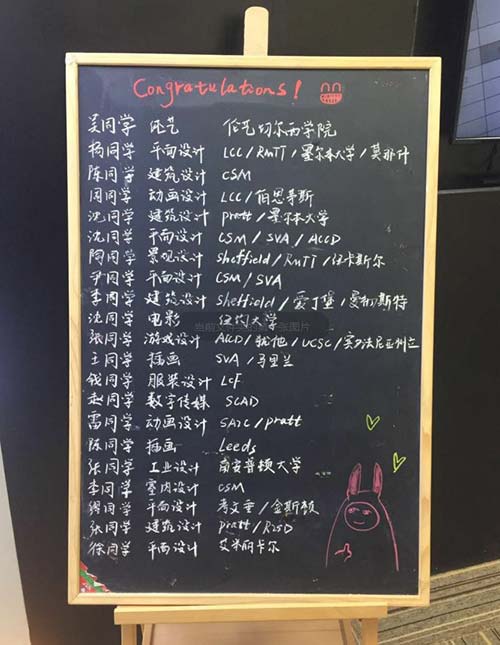 Congratulations!
吴同学 纯艺 伦艺切尔西学院
杨同学 平面设计 LCC / RMIT / 墨尔本大学 / 莫那什
陈同学 建筑设计 CSM
周同学 动画设计 LCC / 伯恩茅斯
沈同学 建筑设计 pratt / 墨尔本大学
沈同学 平面设计 CSM / SVA / ACCD
陶同学 景观设计 sheffield / RMIT / 纽卡斯尔
尹同学 平面设计 CSM / SVA
李同学 建筑设计 sheffield / 爱丁堡 / 曼彻斯特
沈同学 电影 纽约大学
当前文件 张图片
张同学 游戏设计 ACCD / 犹他 / UCSC / 宾夕法尼亚州立
王同学 插画 SVA / 马里兰
钱同学 服装设计 LCF
赵同学 数字传媒 SCAD
雷同学 动画设计 SAIC / pratt
陈同学 插画 Leeds
张同学 工业设计 南安普顿大学
李同学 室内设计 CSM
缪同学 平面设计 考文垂 / 金斯顿
张同学 建筑设计 pratt / RISD
徐同学 平面设计 艾米丽卡尔